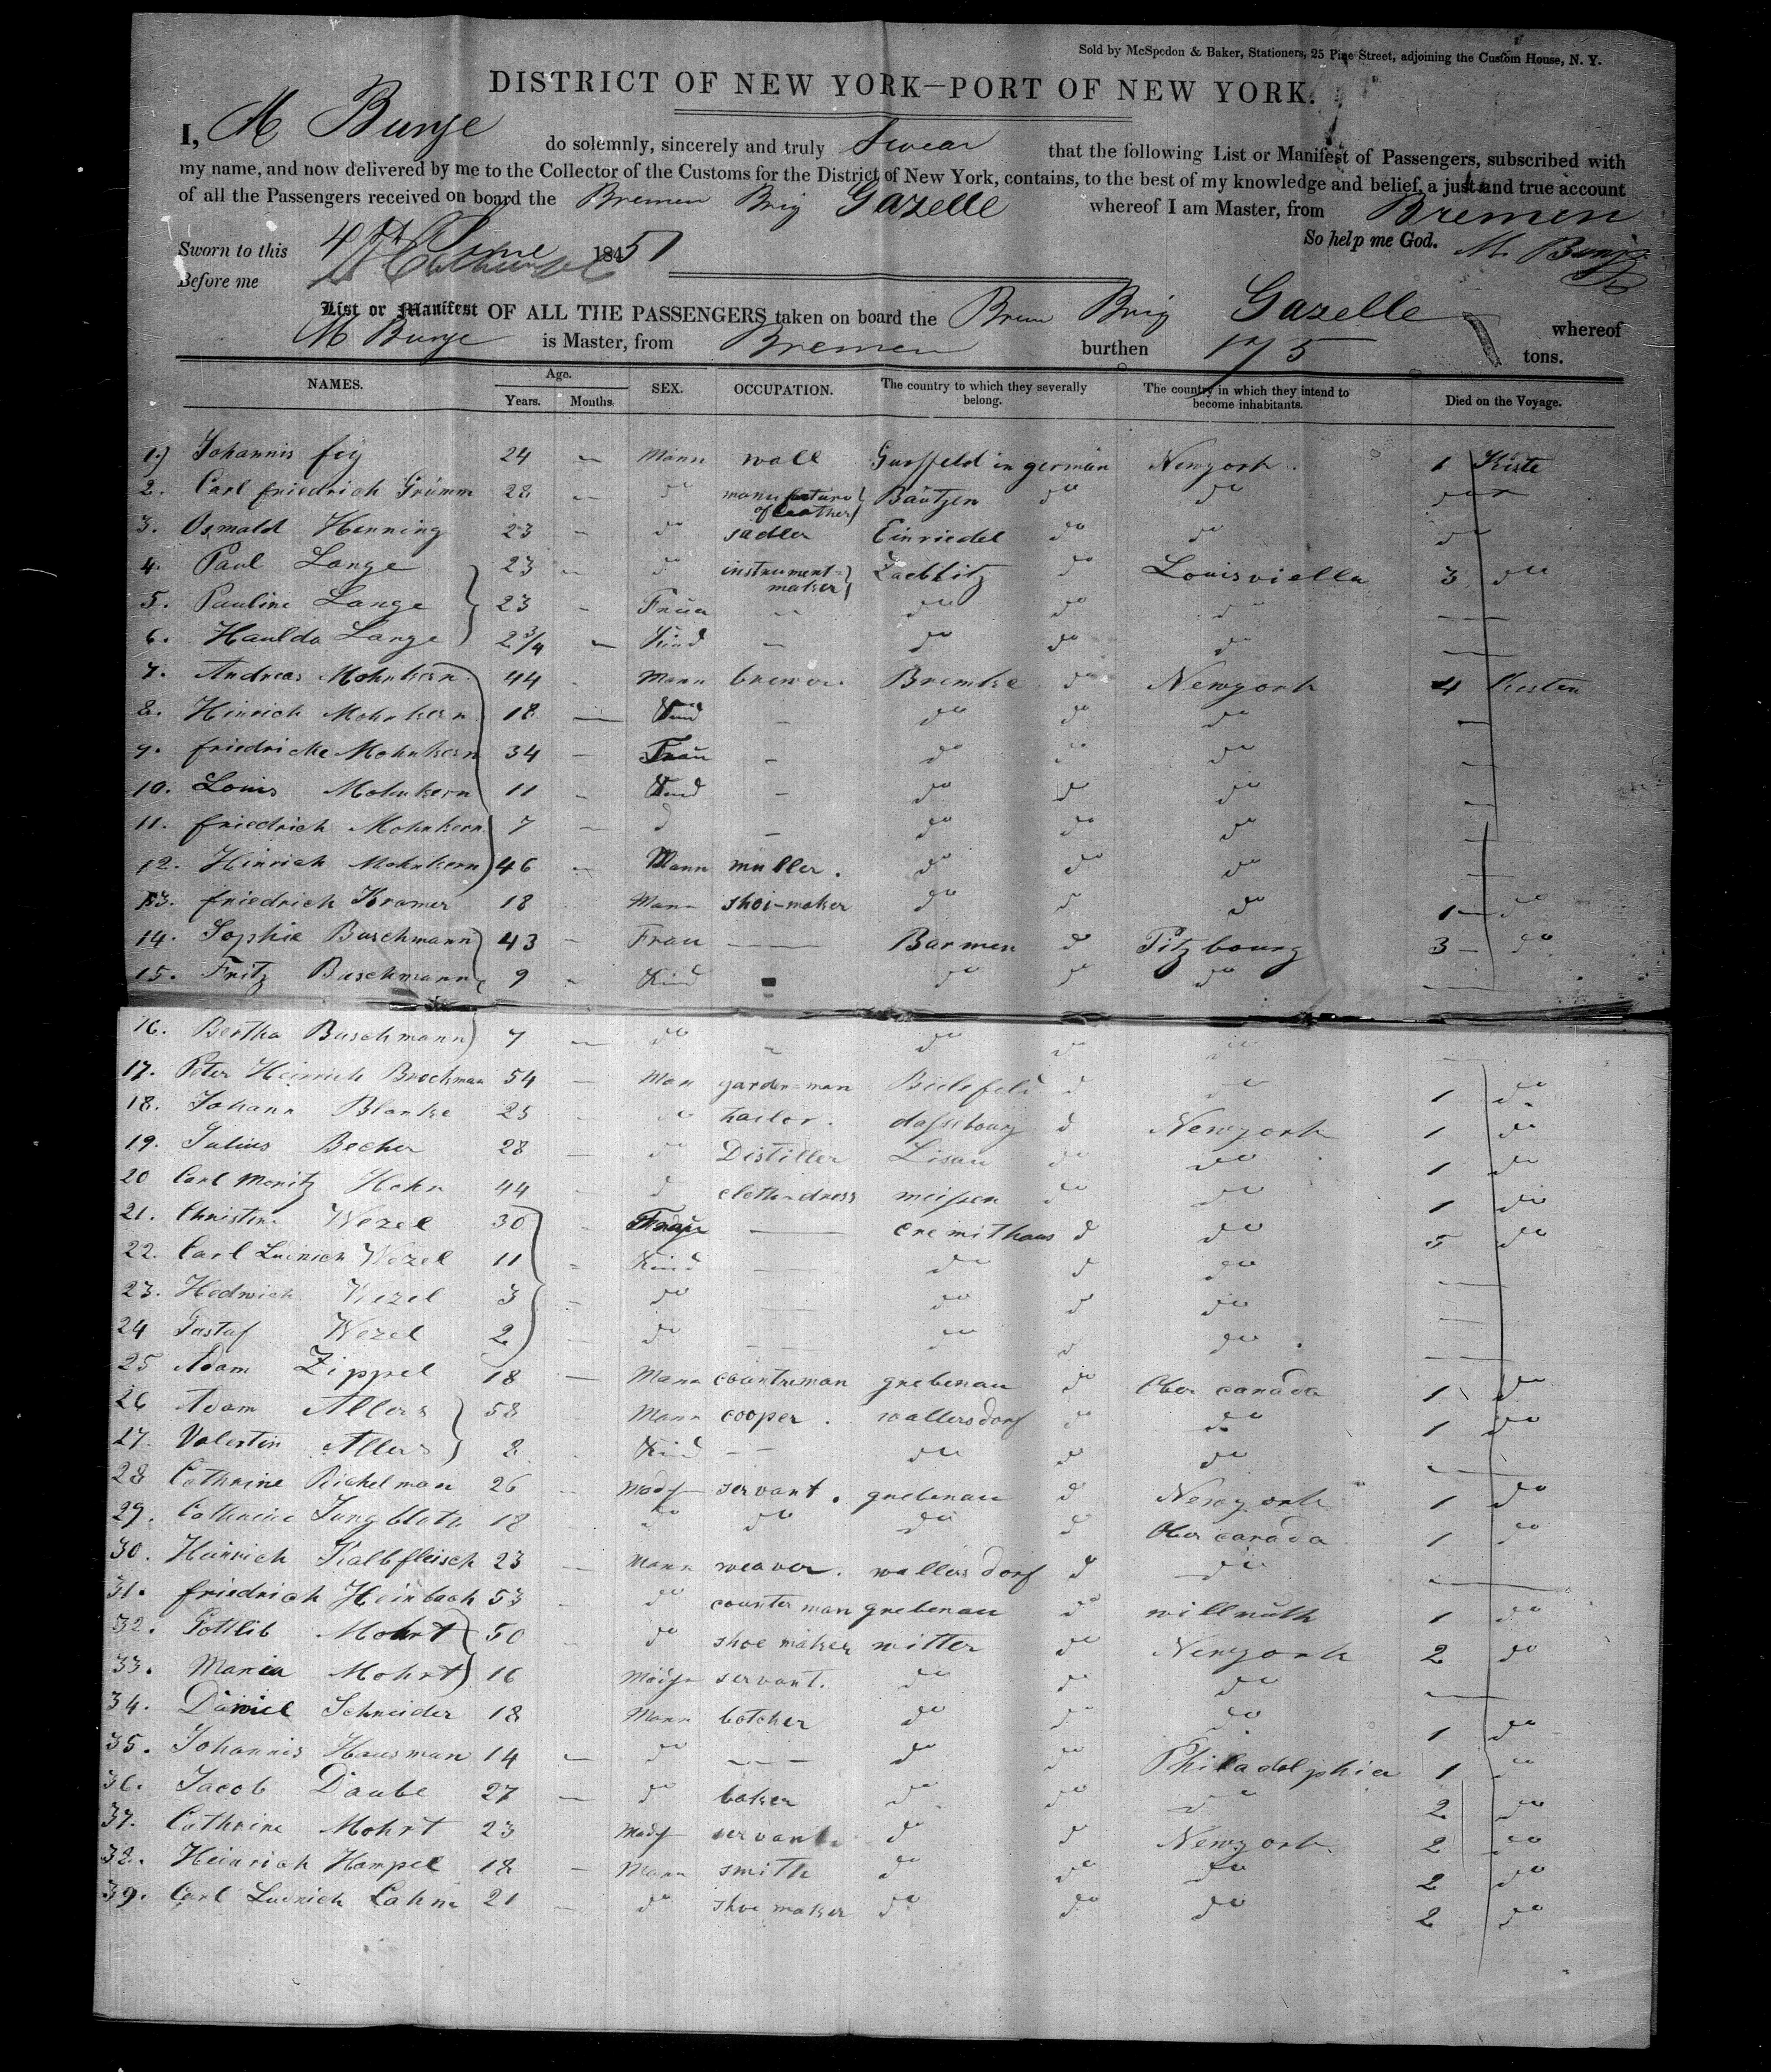 Sold by McSpedon & Baker, Stationers, 25 Pine Street, adjoining the Custom House, N. Y.
DISTRICT OF NEW YORK—PORT OF NEW YORK.
I, M Bunje do solemnly, sincerely and truly Swear that the following List or Manifest of Passengers, subscribed with
my name, and now delivered by me to the Collector of the Customs for the District of New York, contains, to the best of my knowledge and belief, a just and true account
of all the Passengers received on board the Bremen Brig Gazelle whereof I am Master, from Bremen
So help me God. M. Bunje
Sworn to this 4th June 1851
Before me
List or Manifest OF ALL THE PASSENGERS taken on board the Brem Brig Gazelle whereof
M Bunje is Master, from Bremen burthen 175 tons.
NAMES. Age. Years. Months. SEX. OCCUPATION. The country to which they severally belong. The country in which they intend to become inhabitants. Died on the Voyage.
1.) Johannis fey 24 — Mann Newyork. 1 Kiste
2. Carl friedrich Grümm 28 — do manufacture of leather Bautzen do do do
3. Oswald Henning 23 — do sadler Einriedel do do do
4. Paul Lange 23 — do instrument-maker do Louisviella 3 do
5. Pauline Lange 23 — Fraŭ — do do do —
6. Haulda Lange 2 3/4 — Kind — do do do —
7. Andreas Mohnkern 44 - Mann brewer Bremke do Newyork 4 Kisten
8. Hinrich Mohnkern 18 — Kind — do do do —
9. friedricke Mohnkern 34 — Fraŭ — do do do —
10. Louis Mohnkern 11 — Kind — do do do —
11. friedrich Mohnkern 7 — d — do do do —
12. Hinrich Mohnkern 46 — Mann muller. do do do —
13. friedrich Kramer 18 Mann shoi-maker do do do 1 — do
14. Sophie Buschmann 43 — Frau — Barmen d Pitzbourg 3 — do
15. Fritz Buschmann 9 — Kind do do do —
16. Bertha Buschmann 7 — do — do do do —
17. Peter Heinrich Brockman 54 — Man garden=man Bielefeld d do 1 do
18. Johann Blanke 25 - do tailor. d Newyork 1 do
19. Julius Becher 28 — do Distiller Lisau do do 1 do
20 Carl Moritz Hehn 44 — d do do 1 do
21. Christine Wezel 30 - Fraŭ — eremithaus d do 5 do
22. Carl Ludwich Wezel 11 - Kind — do d do —
23. Hedwich Wezel 3 - do — do d do —
24 Gustaf Wezel 2 — do — do d do. —
25 Adam Zippel 18 — Mann countreman grebenau do Ober canada 1 do
26 Adam Allers 58 Mann cooper. wallersdorf do do 1 do
27. Valentin Allers 8 Kind — do d do —
28 Cathrine Richelman 26 servant. grebenau d Newyork 1 do
29. Cathreine Jungbluth 18 do do do d Ober canada 1 do
30. Heinrich Kalbfleisch 23 — Mann weaver. wallersdorf d do —
31. friedrich Heinbach 53 — do counterman grebenau do willmuth 1 do
32. Gottlib Mohrt 50 - do shoe maker witter do Newyork 2 do
33. Maria Mohrt 16 servant. do do do —
34. Daniel Schneider 18 Mann botcher do do do 1 do
35. Johannis Hausman 14 — do — do do Philadelphia 1 do
36. Jacob Daube 27 — do baker do do do 2 do
37. Cathrine Mohrt 23 servant do d Newyork 2 do
38. Heinrich Hampel 18 — Mann smith do do do 2 do
39. Carl Ludwich Lahm 21 — do shoe maker do do do 2 do